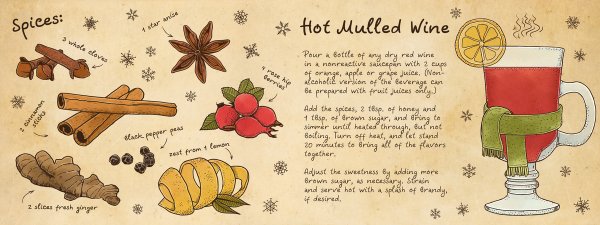 Spices:
3 whole cloves
1 star anise
4 rose hip
berries
2 cinnamon
sticks
black pepper peas
zest from 1 lemon
2 slices fresh ginger
Hot Mulled Wine
Pour a bottle of any dry red wine
in a nonreactive saucepan with 2 cups
of orange, apple or grape juice. (Non-
alcoholic version of the beverage can
be prepared with fruit juices only.)
Add the spices, 2 tbsp. of honey and
1 tbsp. of brown sugar, and bring to
simmer until heated through, but not
boiling. Turn off heat, and let stand
20 minutes to bring all of the flavors
together.
Adjust the sweetness by adding more
brown sugar, as necessary. Strain
and serve hot with a splash of brandy,
if desired.